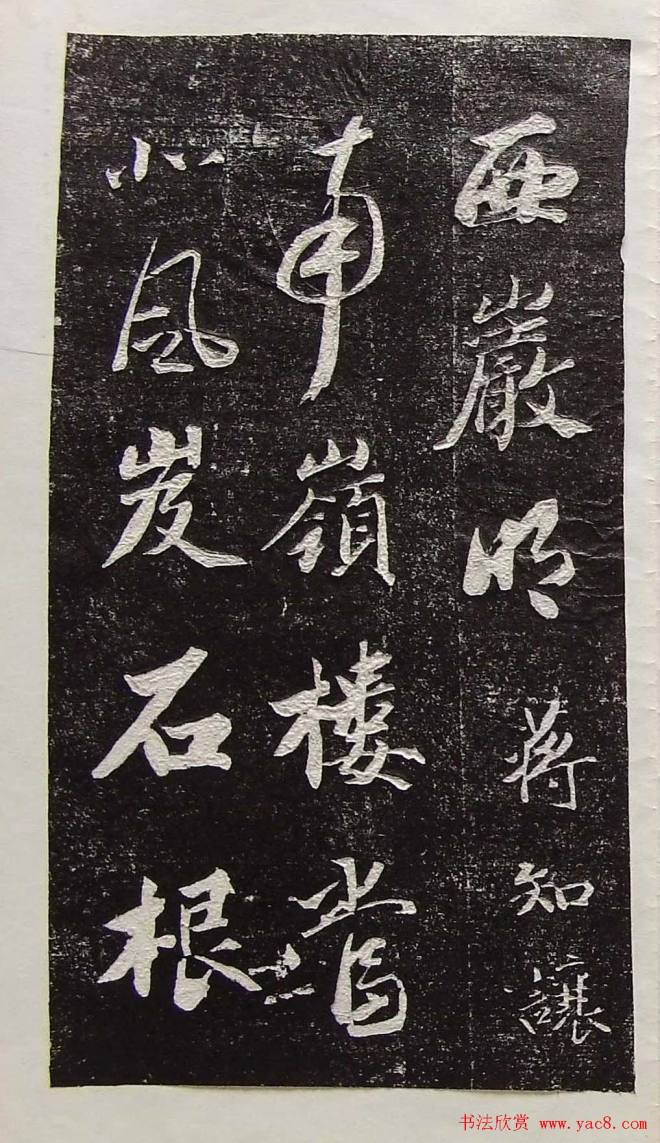 西巖明 蔣知讓
南嶺樓
小風岌石根
书法欣赏 www.yac8.com